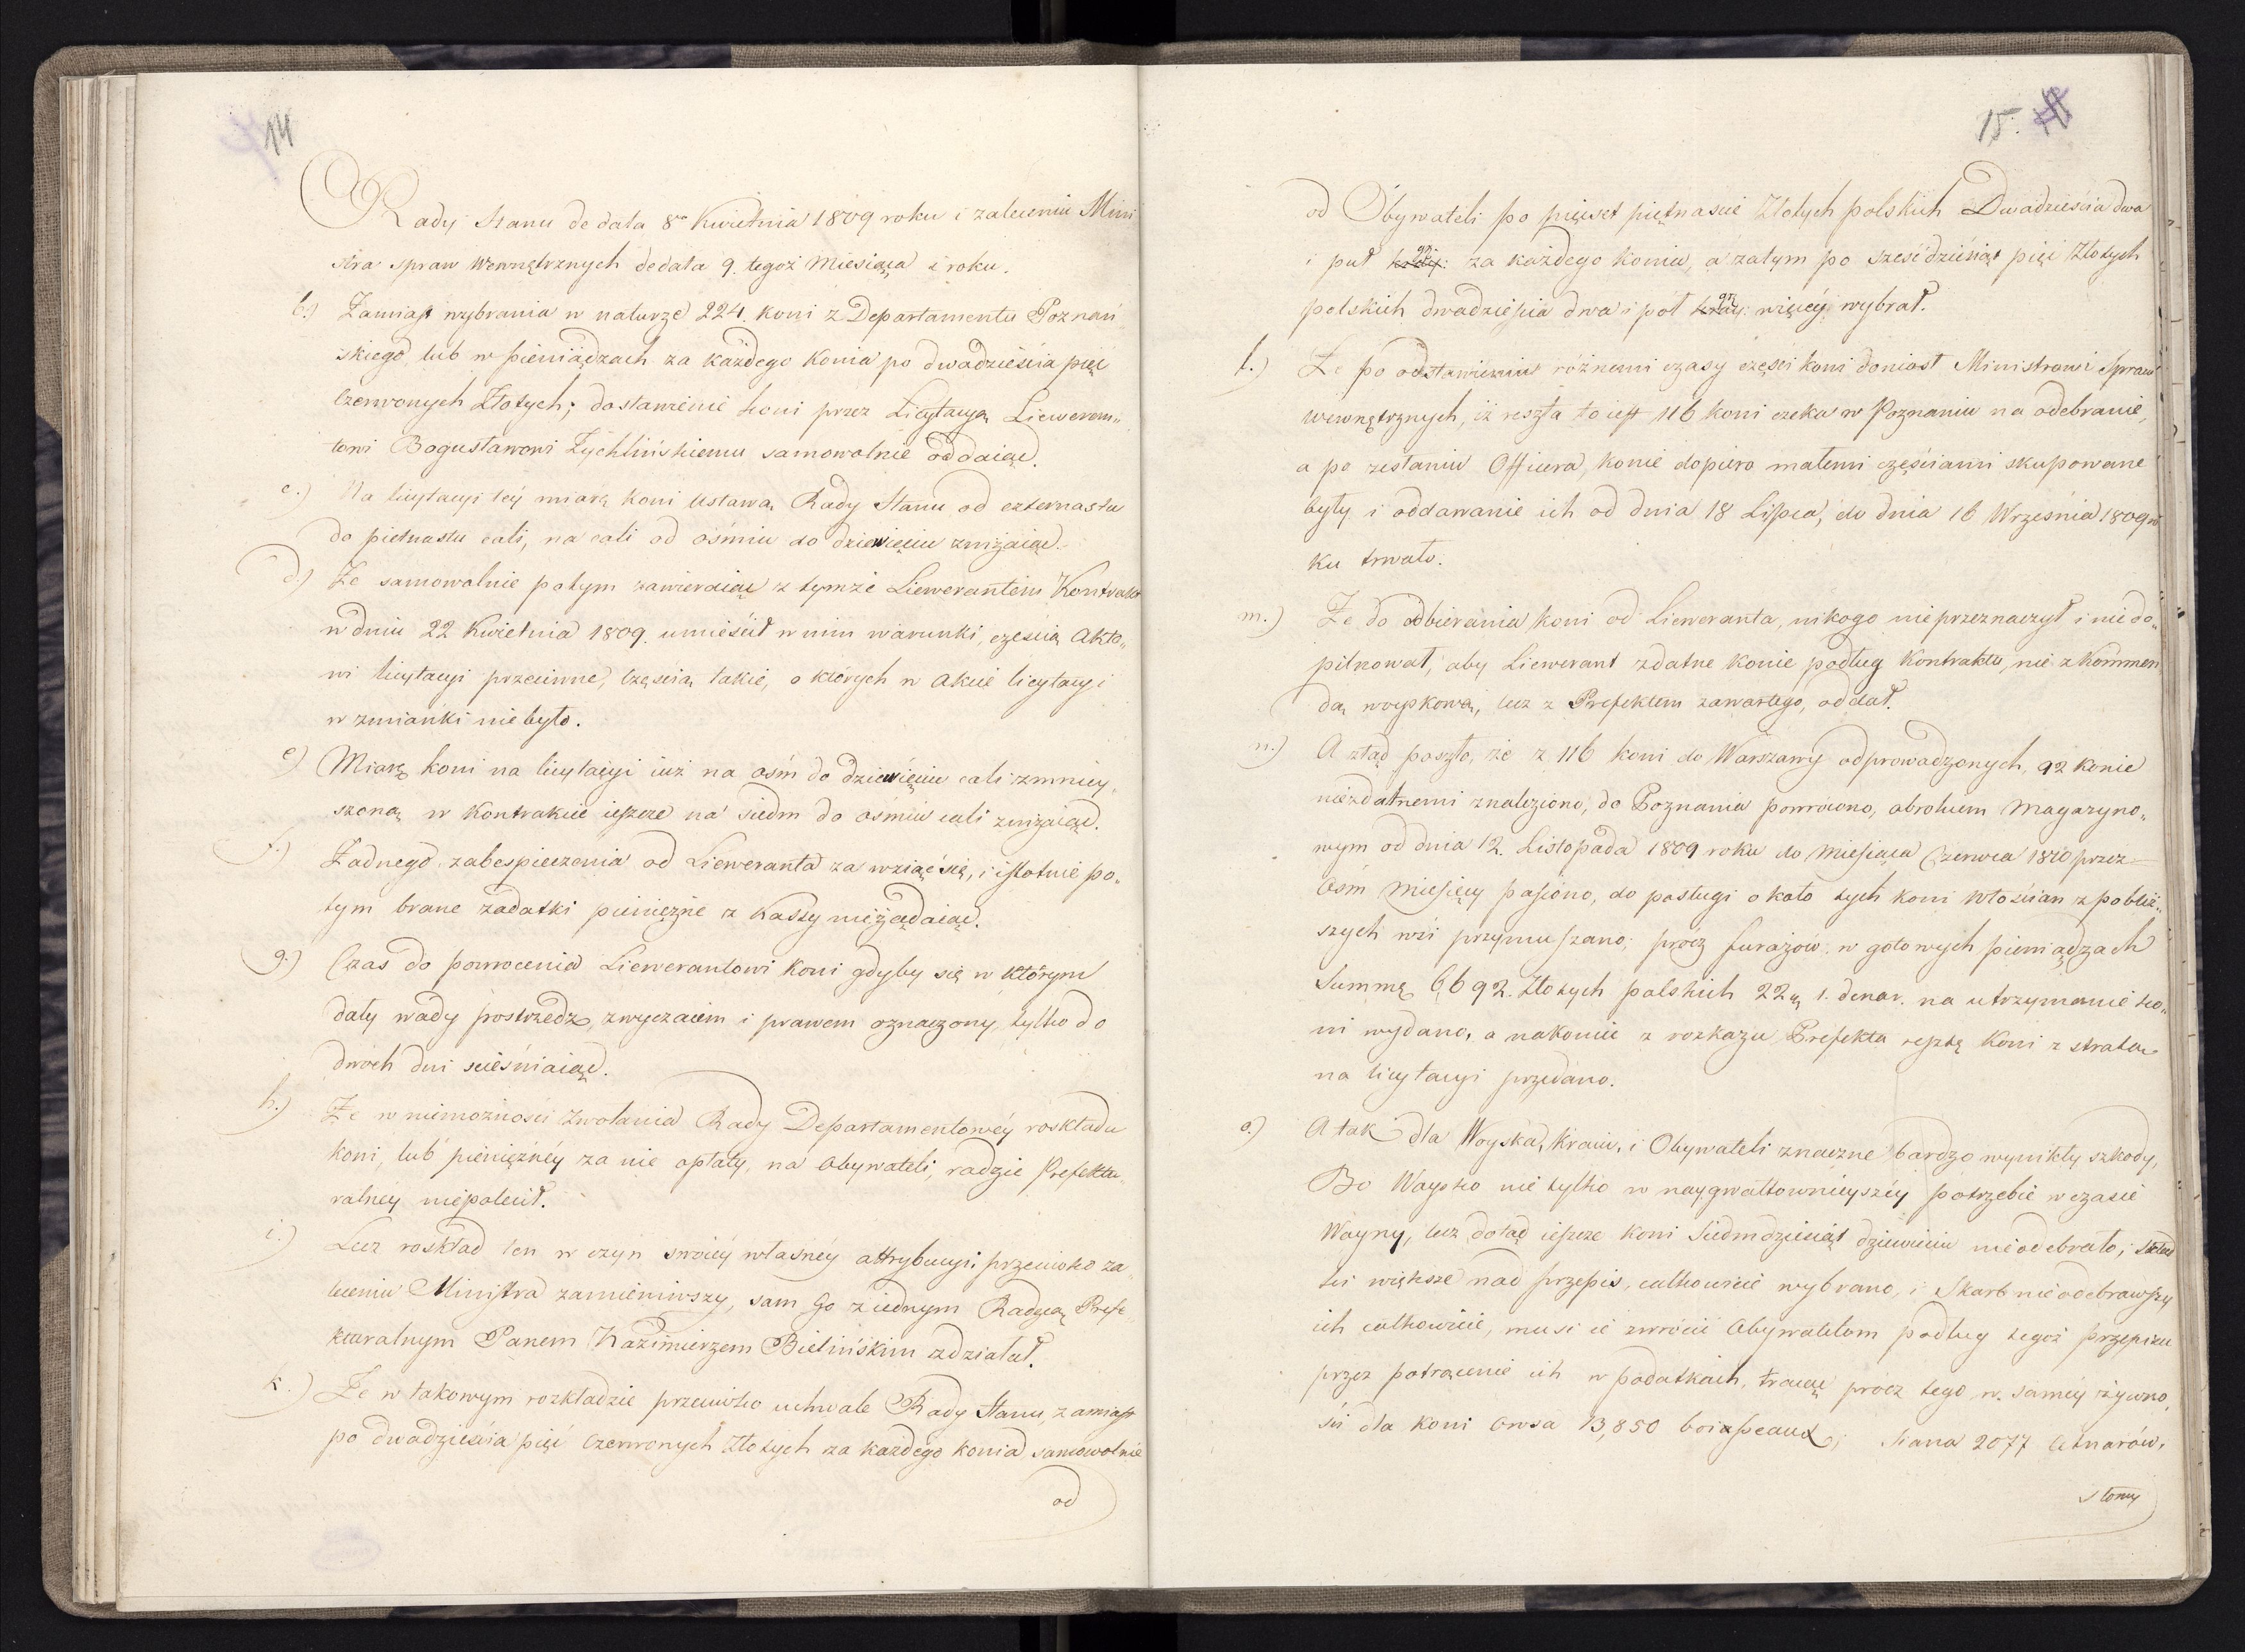 14
Rady Stanu de data 8go Kwietnia 1809 roku i zaleceniu Mini
stra spraw Wewnętrznych de data 9. tegoż Miesiąca i roku.
b.) Zamiast wybrania w naturze 224. koni z Departamentu Poznań
skiego, lub w pieniądzach za każdego Konia po dwadzieścia pięć
Czerwonych Złotych; dostawienie koni przez Licytacyą Liewerom„
towi Bogusławowi Zychlińskiemu samowolnie oddaiąc.
c.) Na licytacyi téy miarę koni ustawą Rady Stanu od czternastu
do pietnastu cali, na cali od ośmiu do dziewięciu zniżaiąc.
d.) Ze samowolnie potym zawieraiąc z tymże Liewerantem Kontrakt
w dniu 22 Kwietnia 1809. umieścił w nim warunki, częścią Akto„
wi licytacyi przeciwne, częścią takie, o których w Akcie licytacyi
w zmianki nie było.
e) Miarę koni na licytacyi iuż na ośm do dziewięciu cali zmniey„
szoną w Kontrakcie ieszcze na siedm do ośmiu cali zniżaiąc.
f.) Żadnego zabespieczenia od Lieweranta za wziąć się, i istotnie po„
tym brane zadatki pieniężne z Kassy nieżądaiąc.
g.) Czas do powrocenia Liewerantowi Koni gdyby się w którym
dały wady postrzedz, zwyczaiem i prawem oznaczony, tylko do
dwóch dni scieśniaiąc.
h.) Ze w niemożności Zwołania Rady Departamentowéy roskładu
koni, lub pieniężnéy za nie opłaty, na Obywateli, radzie Prefektu„
ralnéy niepolecił.
i.) Lecz roskład ten w czyn swoiéy własnéy attrybucyi, przeciwko za„
leceniu Ministra zamieniwszy, sam go z iednym Radzcą Prefe
kturalnym Panem Kazimierzem Bielińskim zdziałał.
k.) Ze w takowym rozkładzie przeciwko uchwale Rady Stanu, zamiast
po dwadzieścia pięć Czerwonych Złotych za każdego konia, samowolnie
od
15.
od Obywateli po pięćset piętnascie Złotych polskich Dwadzieścia dwa
i puł gr. za każdego konia, a zatym po sześćdziesiąt pięć Złotych
polskich dwadzieścia dwa i pół gr. więcéy wybrał.
l.) Ze po odstawieniu różnemi czasy części koni doniosł Ministrowi Spraw
wewnętrznych, iż reszta to iest 116 koni czeka w Poznaniu na odebranie,
a po zesłaniu Officera, konie dopiero małemi częściami skupowane
były i oddawanie ich od dnia 18 Lipca, do dnia 16 Września 1809 ro
ku trwało.
m.) Ze do odbierania koni od Liewerantа, nikogo nieprzeznaczył i nie do„
pilnował, aby Liewerant zdatne konie podług Kontraktu, nie z Kommen
dą woyskową, lecz z Prefektem zawartego, oddał.
n.) A ztąd poszło, że z 116 koni do Warszawy odprowadzonych, 92 konie
niezdatnemi znaleziono, do Poznania powrocono, obrokiem Magazyno„
wym od dnia 12. Listopada 1809 roku do Miesiąca Czerwca 1810 przez
Ośm Miesięcy pasiono, do posługi około tych koni włościan z pobliż„
szych wsi przymuszano; prócz furażów w gotowych pieniądzach
Summę 6692. Złotych polskich 22 g 1. denar. na utrzymanie ko„
ni wydano, a nakoniec z rozkazu Prefekta resztę Koni z stratą
na licytacyi przedano.
o.) A tak dla Woyska, kraiu, i Obywateli znaczne bardzo wynikły szkody,
Bo Woysko nie tylko w naygwałtownieyszéy potrzebie w czasie
Woyny, lecz dotąd ieszcze koni Siedmdziesiąt dziewięciu nieodebrało; skład
ki większe nad przepis, całkowicie wybrano, i Skarb nieodebrawszy
ich całkowicie, musi ie zwrócić Obywatelom podług tegoż przepisu
przez potrącenie ich w podatkach, tracąc prócz tego w saméy żywno„
ści dla koni Owsa 13,850 boisseaux; Siana 2077 Cetnarów,
słomy